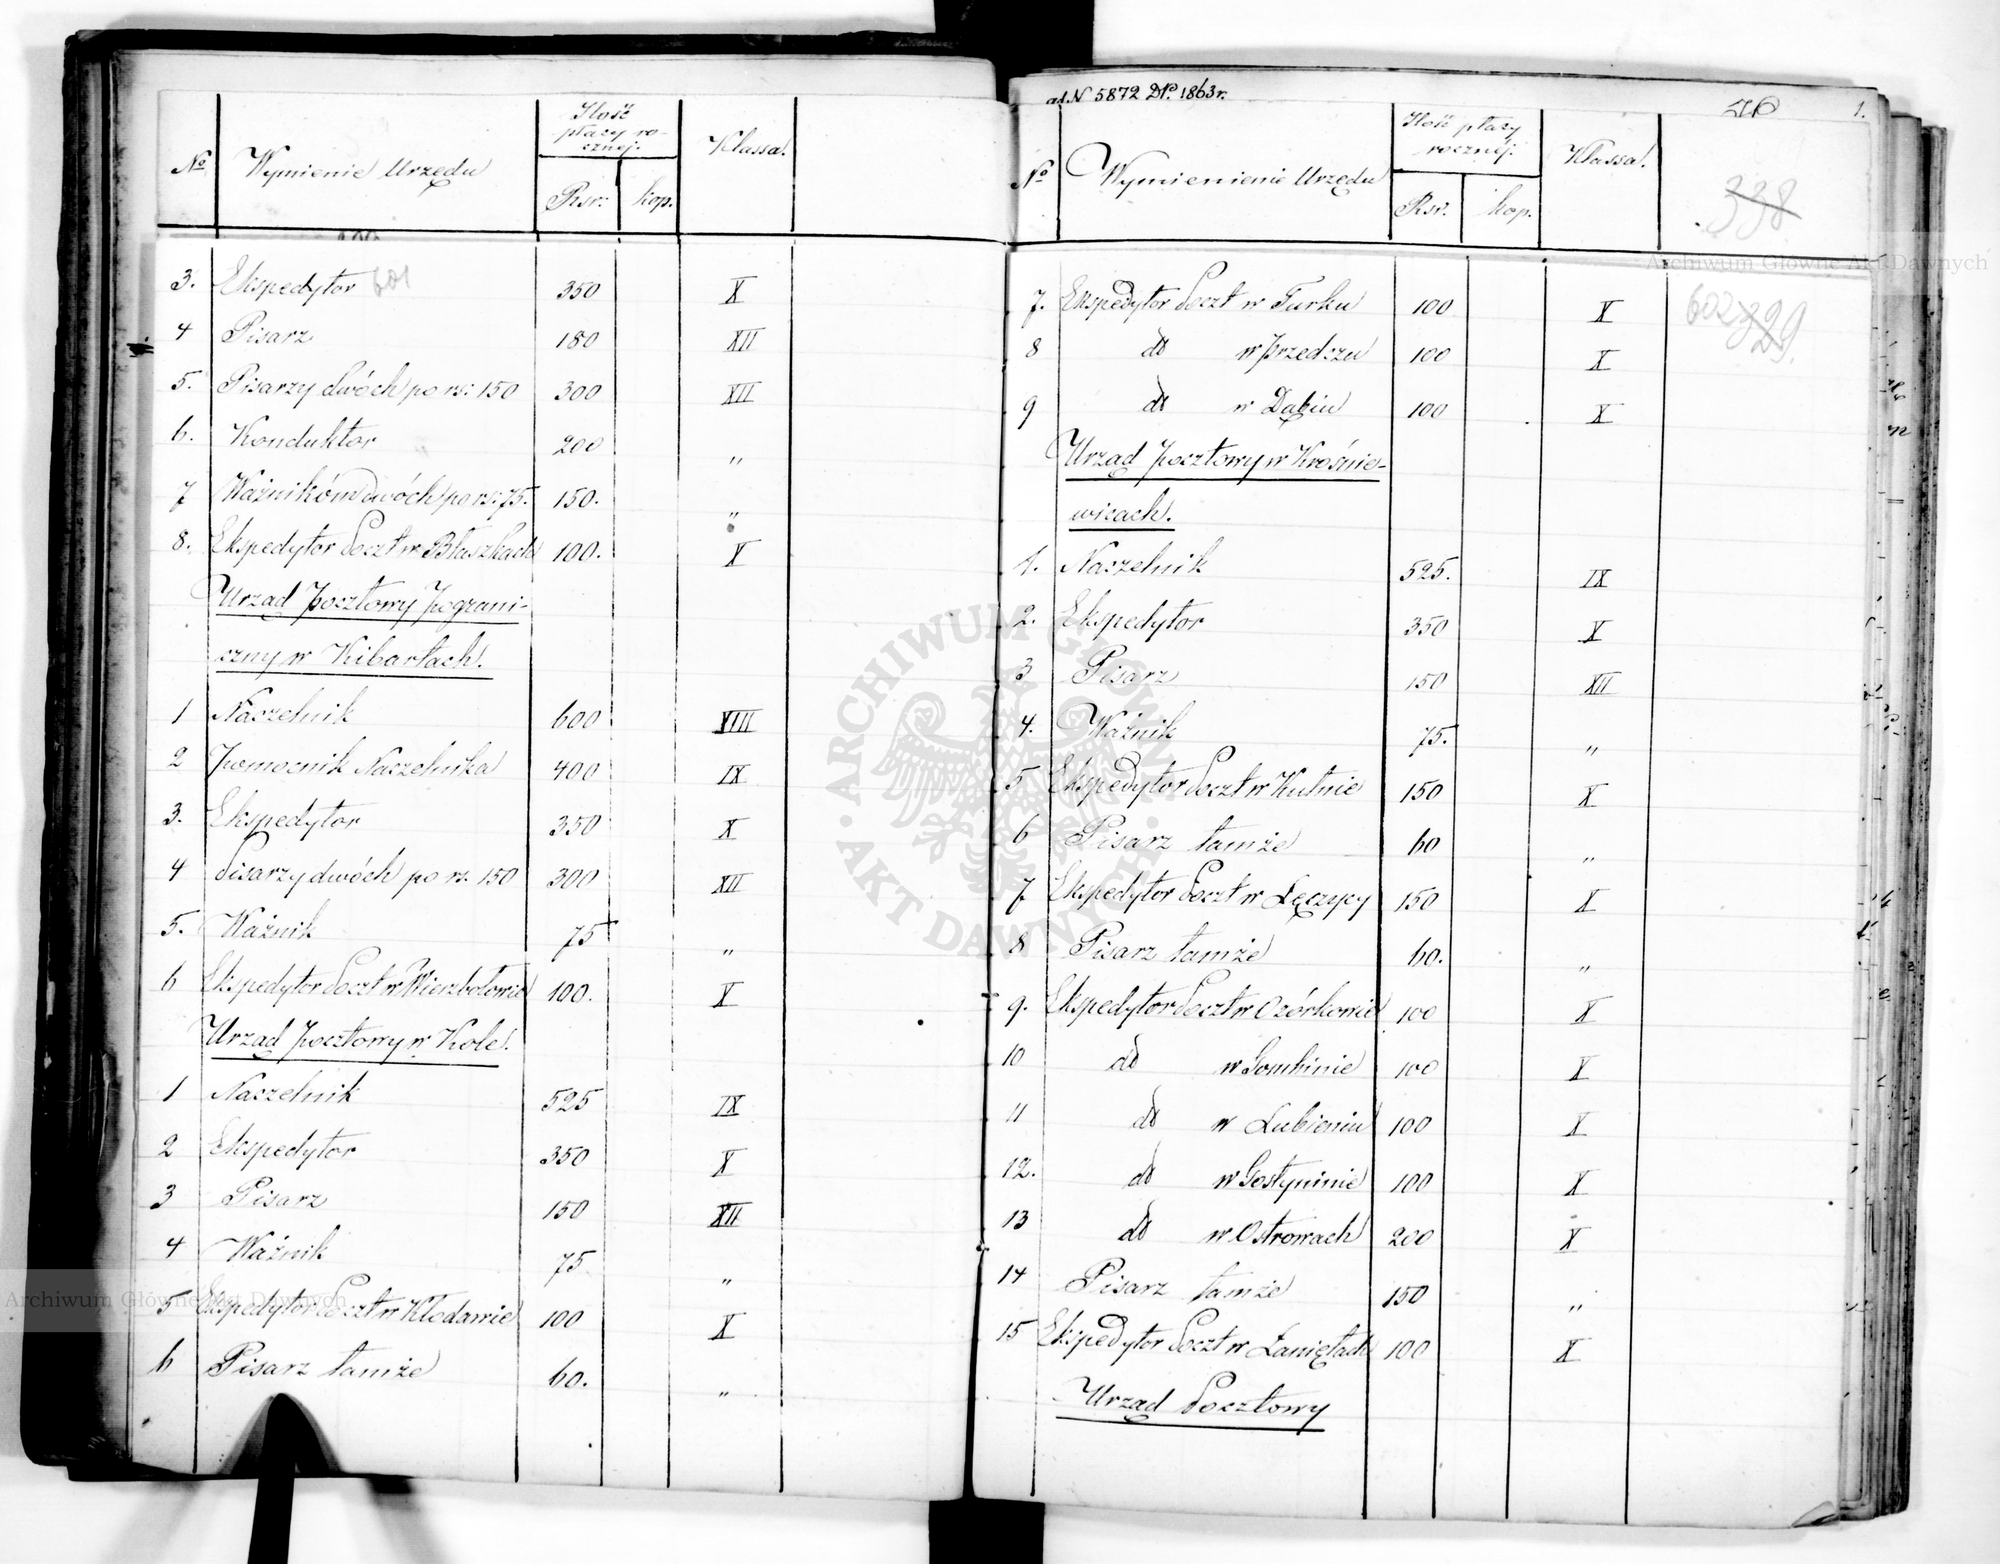 Ilość
płacy ro-
cznej.
№ Wymienie Urzędu Klassa.
Rsr. kop.
3. Ekspedytor 601 350 X
4 Pisarz 180 XII
5. Pisarzy dwóch po rs: 150 300 XII
6. Konduktor 200 "
7 Ważników dwóch po rs: 75. 150. "
8. Ekspedytor Poczt w Błaszkach 100. X
Urząd Pocztowy Pograni-
czny w Kibartach.
1 Naczelnik 600 VIII
2 Pomocnik Naczelnika 400 IX
3. Ekspedytor 350 X
4 Pisarzy dwóch po rs. 150 300 XII
5. Ważnik 75 "
6 Ekspedytor Poczt w Wierzbołowie 100. X
Urząd Pocztowy w Kole.
1 Naczelnik 525 IX
2 Ekspedytor 350 X
3 Pisarz 150 XII
4 Ważnik 75 "
5 Ekspedytor Poczt w Kłodawie 100 X
6 Pisarz tamże 60. "
ad N 5872 DP. 1863 r.
1.
Ilość płacy
rocznéj.
№ Wymienienie Urzędu Klassa.
Rsr. kop.
338
7. Ekspedytor Poczt w Turku 100 X
602 329.
8 do w Przedczu 100 X
9 do w Dąbiu 100 X
Urząd Pocztowy w Krośnie-
wicach.
1. Naczelnik 525. IX
2. Ekspedytor 350 X
3 Pisarz 150 XII
4. Ważnik 75. "
5 Ekspedytor Poczt w Kutnie 150 X
6 Pisarz tamże 60 "
7 Ekspedytor Poczt w Łęczycy 150 X
8 Pisarz tamże 60. "
9. Ekspedytor Poczt w Ozórkowie 100 X
10 do w Gombinie 100 X
11 do w Lubieniu 100 X
12. do w Gostyninie 100 X
13 do w Ostrowach 200 X
14 Pisarz tamże 150 "
15 Ekspedytor Poczt w Łaniętach 100 X
Urząd Pocztowy
Archiwum Główne Akt Dawnych
ARCHIWUM GŁÓWNE
AKT DAWNYCH
Archiwum Główne Akt Dawnych